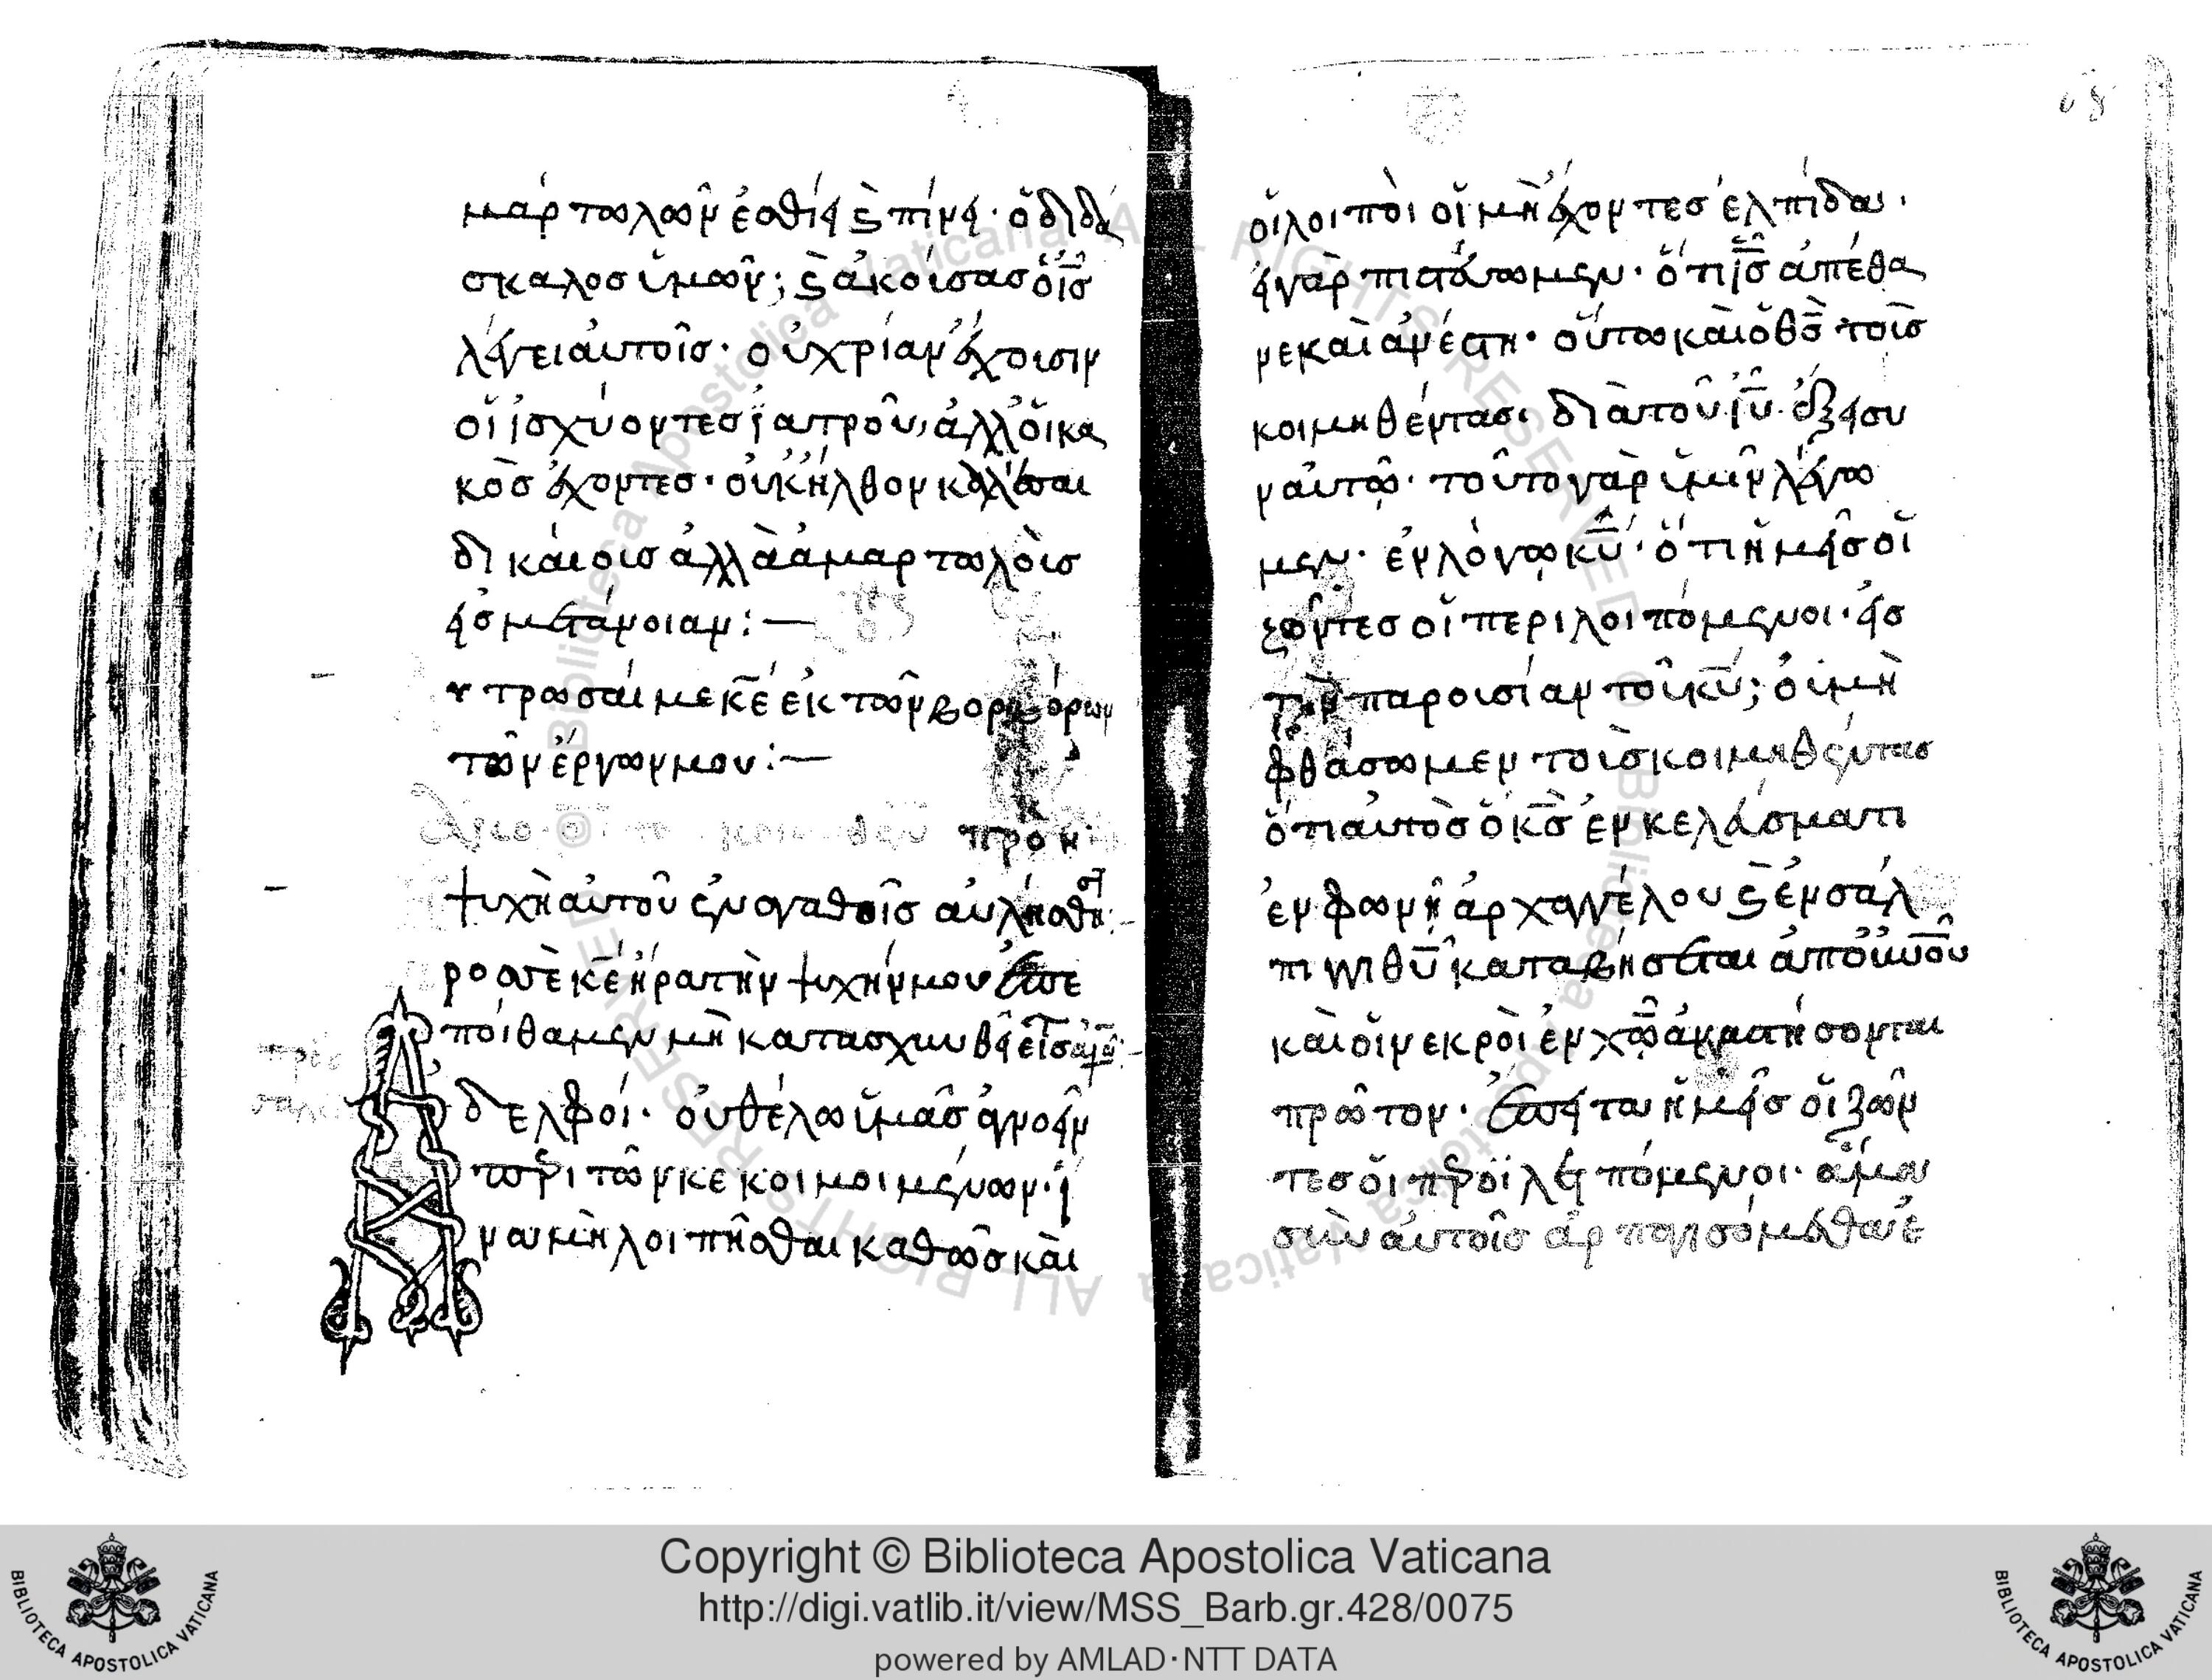 μαρτωλῶν ἐσθίει καὶ πίνει· ὁ διδά
σκαλοσ ὑμῶν; καὶ ἀκούσασ ὁ ἰσ
λέγει αὐτοῖσ· οὐ χρίαν ἔχουσιν
οἱ ἰσχύοντεσ ἰατροῦ, ἀλλ' οἱ κα
κὸσ ἔχοντεσ· οὐκ ἦλθον καλέσαι
δικάιοισ ἀλλὰ ἁμαρτωλὸισ
εἰσ μετάνοιαν:—
υτρωσάι με κε ἐκ τῶν βορβόρων
τῶν ἔργων μου:—
προκ
ψυχὴ αὐτοῦ ἐν αγαθοῖσ αὐλησθη
ροσ σὲ κε ἦρα τὴν ψυχήν μου ἐπὶ σε
πόιθα μεν μὴ κατασχυνθει εἰσ
δελφοί· οὐ θέλω ὑμᾶσ ἀγνοεῖν
περι τῶν κεκοιμοιμένων· ἵ
να μὴ λοιπῆσθαι καθῶσ κὰι
οἱ λοιπὸι οἱ μὴ ἔχοντεσ ἐλπίδα·
εἰ γὰρ πιστέυωμεν· ὅτι ἰσ ἀπέθα
νε κὰι ἀνέστη· οὕτω κὰι ὁ θσ τοὺσ
κοιμηθέντασ· διὰ τοῦ ἰυ ἄξει συ
ν αὐτῶ· τοῦτο γὰρ ὑμῖν λέγω
μεν· ἐν λόγω κυ· ὅτι ἡμεῖσ οἱ
ζῶντεσ οἱ περιλοιπόμενοι· εἰσ
τὴν παρουσίαν τοῦ κυ; οὐ μὴ
φθάσωμεν τοὺσ κοιμηθέντασ
ὅτι αὐτὸσ ὁ κσ ἐν κελέυσματι
ἐν φωνῆ ἀρχαγγέλου καὶ ἐν σάλ
πιγγι θυ καταβήσεται ἀπ' οὐνοῦ
κὰι οἱ νεκρὸι ἐν χῶ ἀναστήσονται
πρῶτον· ἔπειτα ἡμεῖσ οἱ ζῶν
τεσ οἱ περιλειπόμενοι· ἅμα
σὺν αὐτοῖσ ἁρπαγισόμεθα ἐ
Copyright © Biblioteca Apostolica Vaticana
http://digi.vatlib.it/view/MSS_Barb.gr.428/0075
powered by AMLAD·NTT DATA
BIBLIOTECA APOSTOLICA VATICANA
BIBLIOTECA APOSTOLICA VATICANA